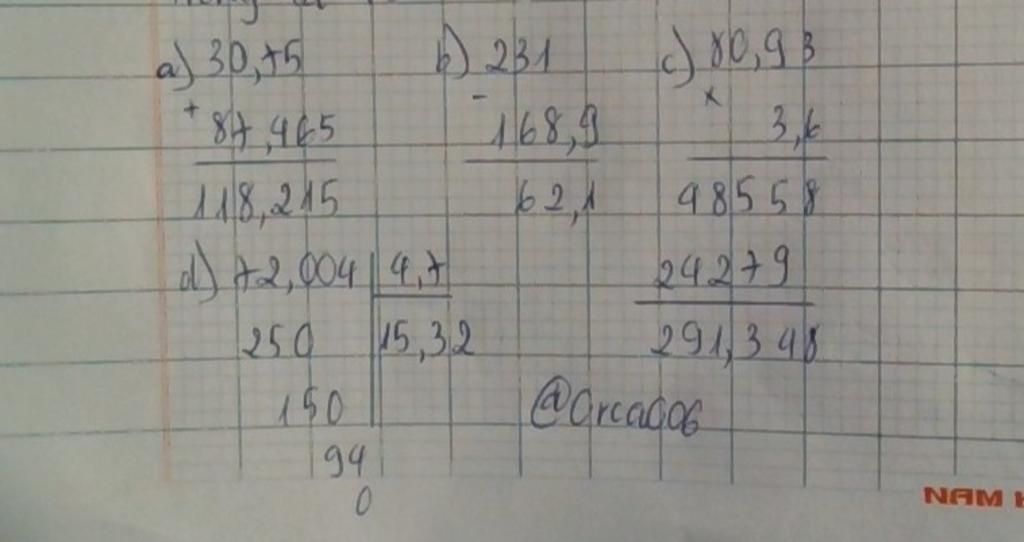 a) 30,75
+
87,465
118,215
b) 231
-
168,9
62,1
c) 80,93
x
3,6
48558
24279
291,348
d) 72,004 4,7
250 15,32
150
94
0
@Orca006
NAM